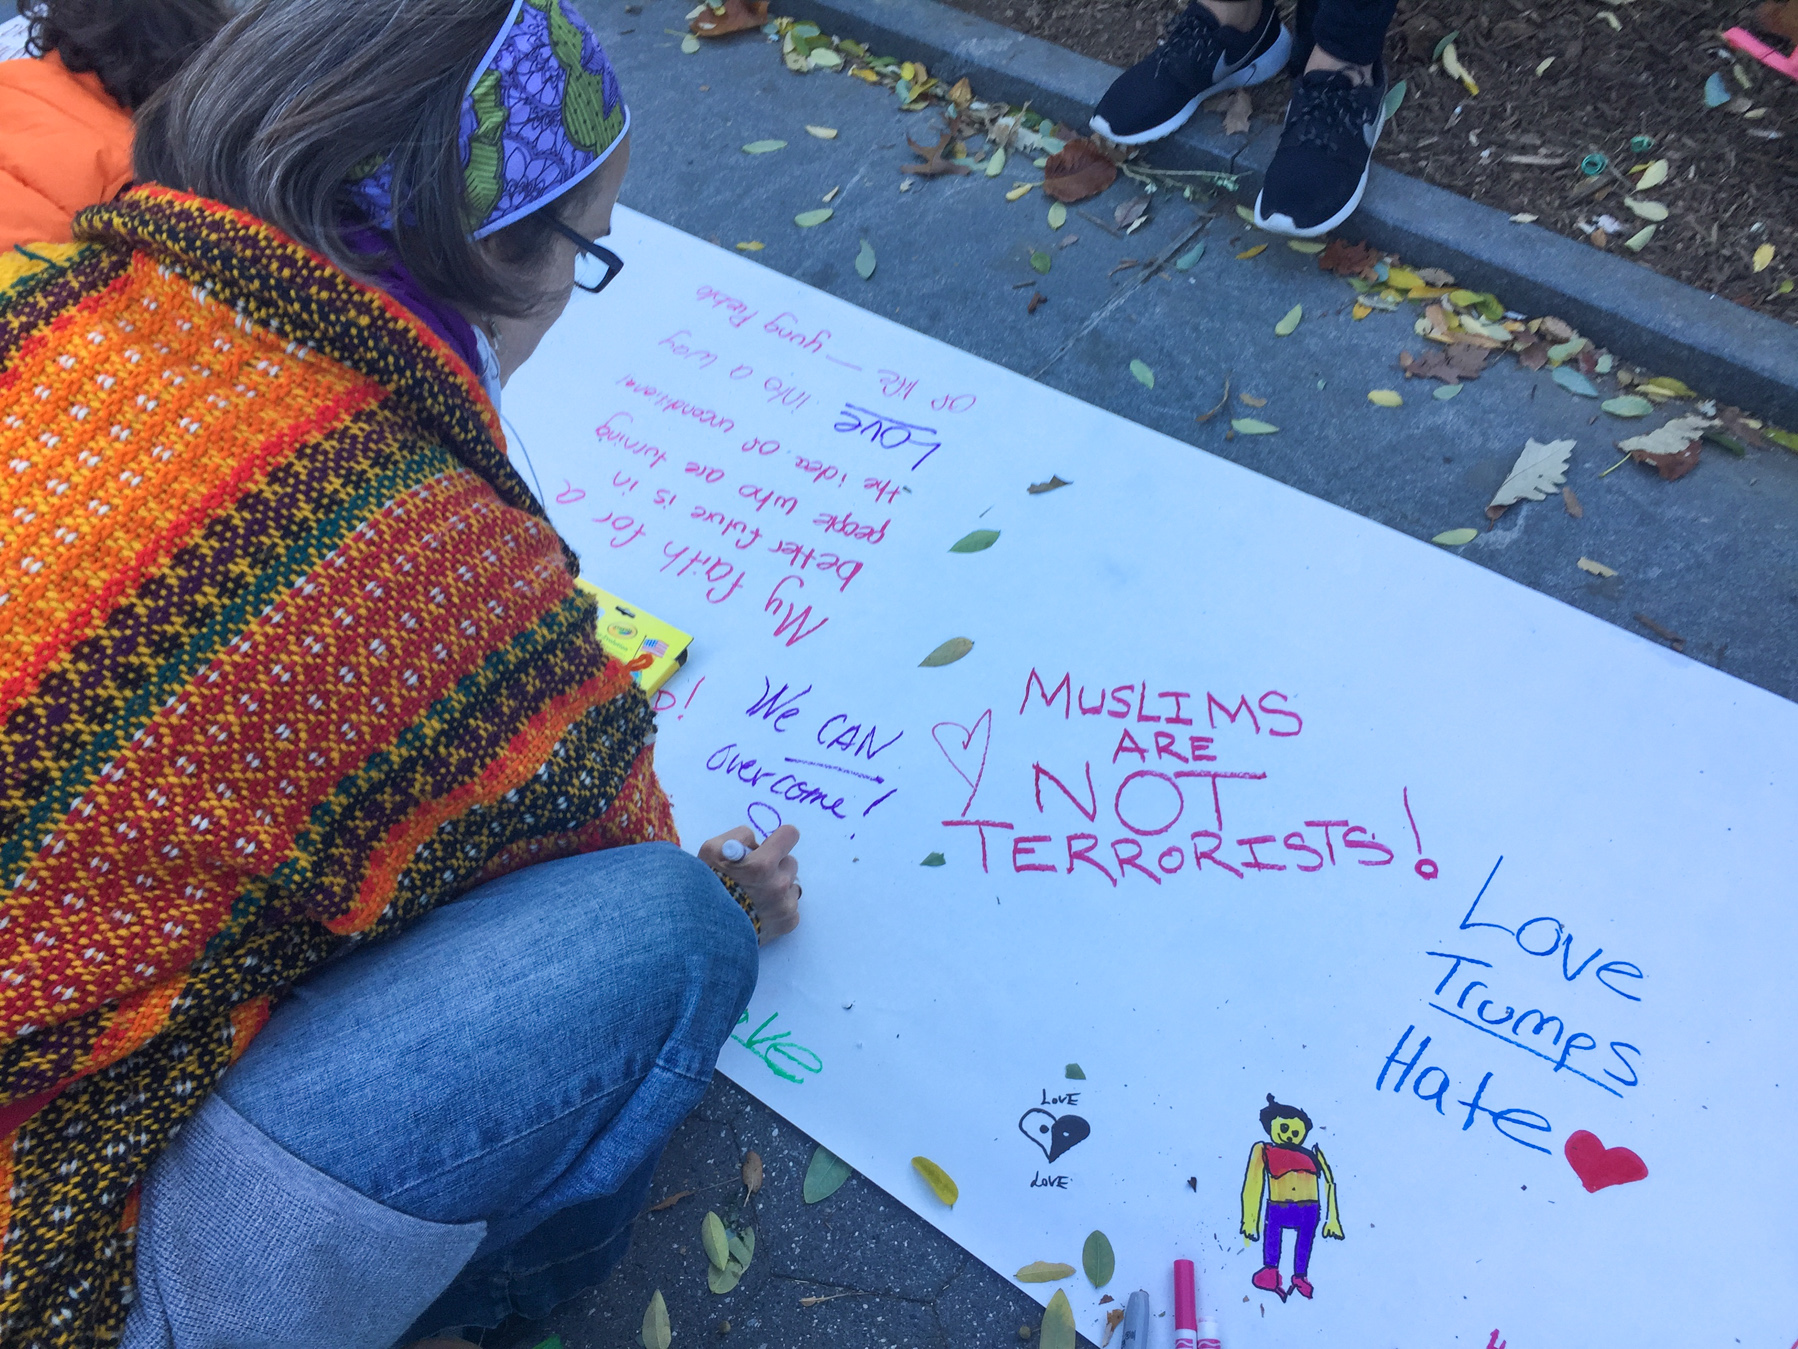 My faith for a
better future is in
people who are turning
the idea of unconditional
Love into a way
of life – yung Pueblo
We CAN
overcome!
MUSLIMS
ARE
NOT
TERRORISTS!
Love
Trumps
Hate
LOVE
LOVE